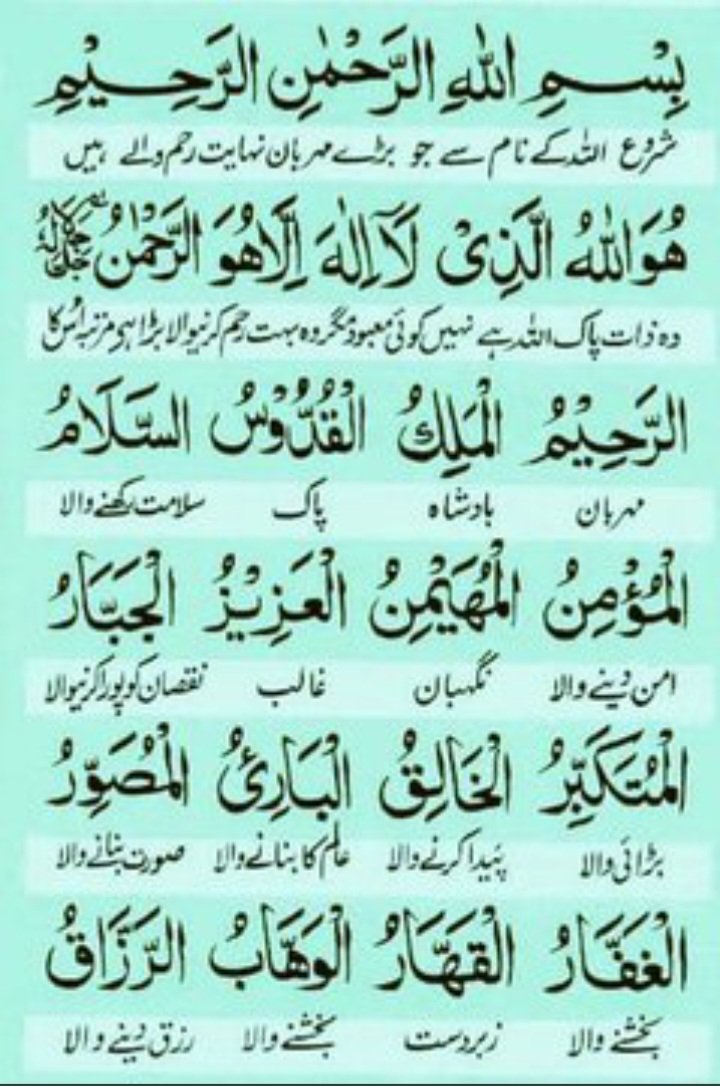 بِسْمِ اللهِ الرَّحْمٰنِ الرَّحِيْمِ
شروع اللہ کے نام سے جو بڑے مہربان نہایت رحم والے ہیں
هُوَ اللهُ الَّذِیْ لَآ اِلٰهَ اِلَّا هُوَ الرَّحْمٰنُ جَلَّ جَلَالُهٗ
وہ ذات پاک اللہ ہے نہیں کوئی معبود مگر وہ بہت رحم کرنیوالا بڑا ہی مرتبہ اُس کا
الرَّحِيْمُ الْمَلِكُ الْقُدُّوْسُ السَّلَامُ
مہربان بادشاہ پاک سلامت رکھنے والا
الْمُؤْمِنُ الْمُهَيْمِنُ الْعَزِيْزُ الْجَبَّارُ
امن دینے والا نگہبان غالب نقصان کو پورا کرنیوالا
الْمُتَكَبِّرُ الْخَالِقُ الْبَارِئُ الْمُصَوِّرُ
بڑائی والا پیدا کرنے والا عالم کا بنانے والا صورت بنانے والا
الْغَفَّارُ الْقَهَّارُ الْوَهَّابُ الرَّزَّاقُ
بخشنے والا زبردست بخشنے والا رزق دینے والا